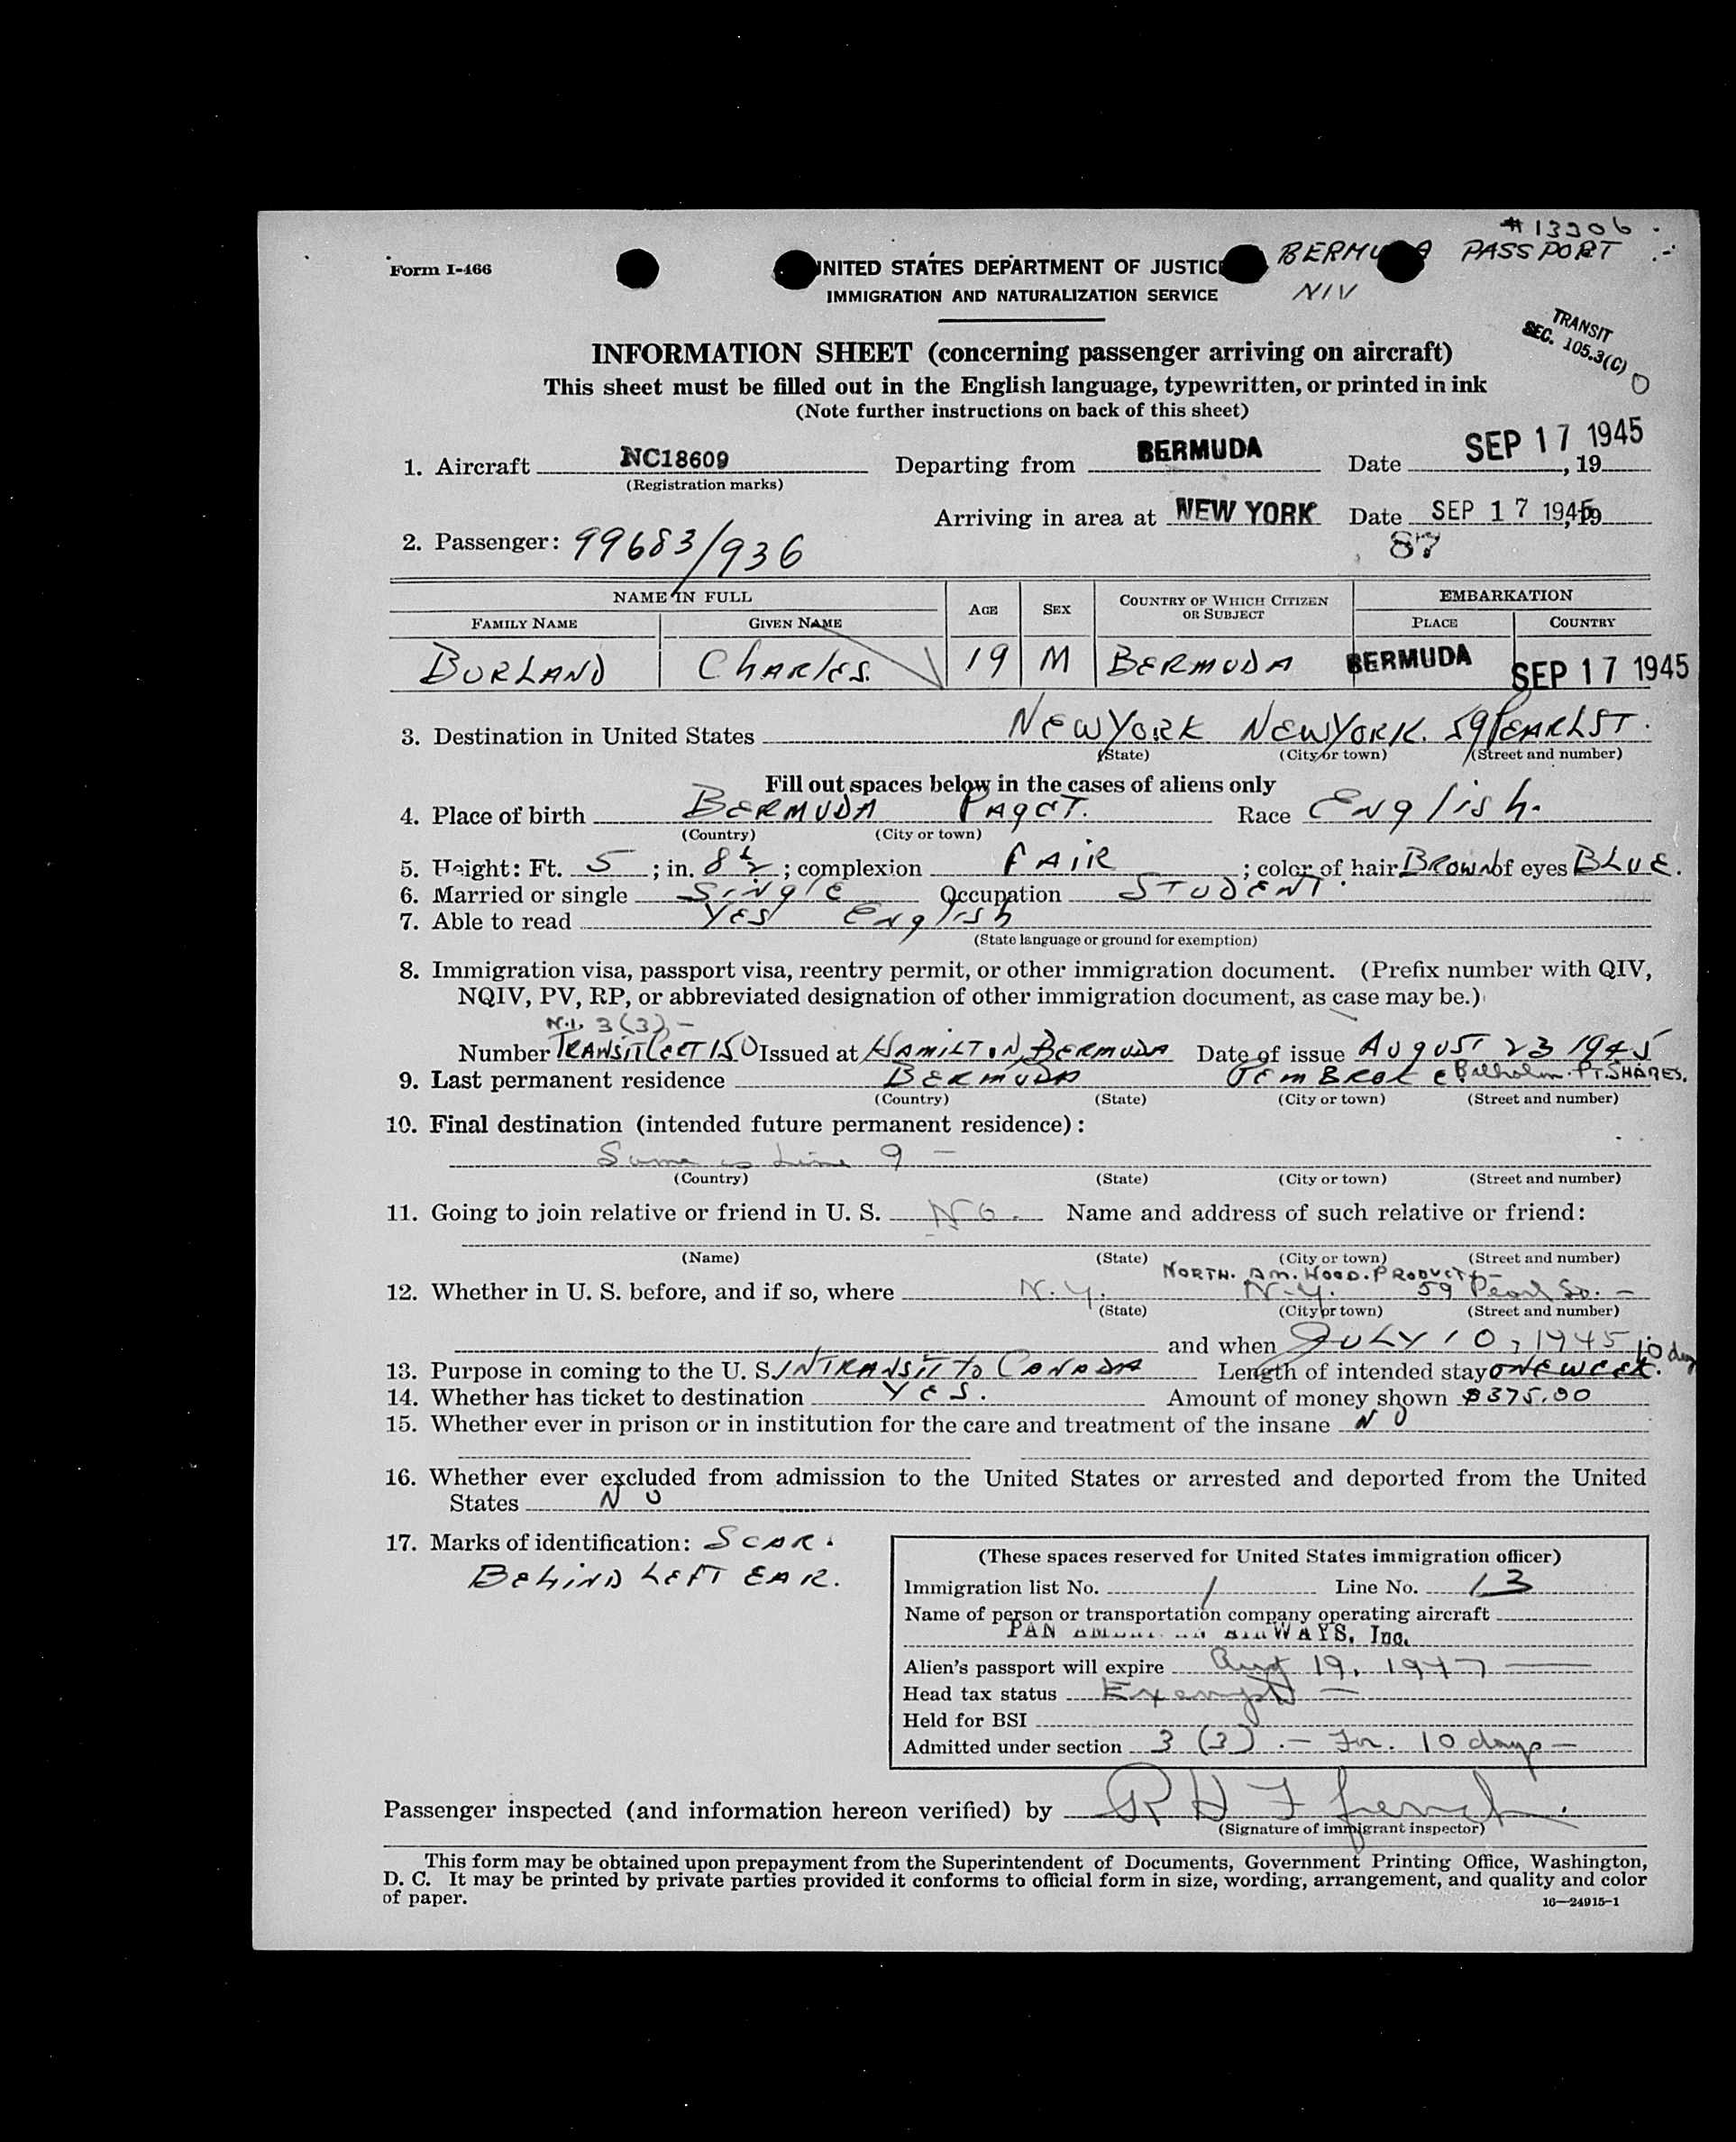 #13306
Form I-466
UNITED STATES DEPARTMENT OF JUSTICE
BERMUDA PASSPORT
IMMIGRATION AND NATURALIZATION SERVICE
NIV
TRANSIT
SEC. 105.3(C)
INFORMATION SHEET (concerning passenger arriving on aircraft)
This sheet must be filled out in the English language, typewritten, or printed in ink
(Note further instructions on back of this sheet)
1. Aircraft NC18609 Departing from BERMUDA Date SEP 17 1945, 19
(Registration marks)
Arriving in area at NEW YORK Date SEP 17 1945, 19
2. Passenger: 99683/936 87
NAME IN FULL AGE SEX COUNTRY OF WHICH CITIZEN OR SUBJECT EMBARKATION
FAMILY NAME GIVEN NAME PLACE COUNTRY
BURLAND CHARLES. 19 M BERMUDA BERMUDA SEP 17 1945
3. Destination in United States NEW YORK NEW YORK. 59 PEARL ST.
(State) (City or town) (Street and number)
Fill out spaces below in the cases of aliens only
4. Place of birth BERMUDA PAGET. Race English.
(Country) (City or town)
5. Height: Ft. 5; in. 8½; complexion FAIR; color of hair BROWN of eyes BLUE.
6. Married or single Single Occupation STUDENT.
7. Able to read YES English
(State language or ground for exemption)
8. Immigration visa, passport visa, reentry permit, or other immigration document. (Prefix number with QIV,
NQIV, PV, RP, or abbreviated designation of other immigration document, as case may be.)
N.I. 3(3) –
Number TRANSIT CERT 150 Issued at HAMILTON, BERMUDA Date of issue AUGUST 23 1945
9. Last permanent residence BERMUDA PEMBROKE PT. SHARES.
(Country) (State) (City or town) (Street and number)
10. Final destination (intended future permanent residence):
Same as Line 9 –
(Country) (State) (City or town) (Street and number)
11. Going to join relative or friend in U. S. NO. Name and address of such relative or friend:
(Name) (State) (City or town) (Street and number)
NORTH. AM. WOOD. PRODUCTS –
12. Whether in U. S. before, and if so, where N.Y. N.Y. 59 Pearl St. –
(State) (City or town) (Street and number)
and when JULY 10, 1945 10 days
13. Purpose in coming to the U. S. INTRANSIT TO CANADA Length of intended stay ONE WEEK.
14. Whether has ticket to destination YES. Amount of money shown $375.00
15. Whether ever in prison or in institution for the care and treatment of the insane NO
16. Whether ever excluded from admission to the United States or arrested and deported from the United
States NO
17. Marks of identification: SCAR.
BEHIND LEFT EAR.
(These spaces reserved for United States immigration officer)
Immigration list No. 1 Line No. 13
Name of person or transportation company operating aircraft
PAN AMERICAN AIRWAYS, Inc.
Alien's passport will expire Aug 19, 1947
Head tax status Exempt –
Held for BSI
Admitted under section 3 (3) . – For. 10 days –
Passenger inspected (and information hereon verified) by R H F French
(Signature of immigrant inspector)
This form may be obtained upon prepayment from the Superintendent of Documents, Government Printing Office, Washington,
D. C. It may be printed by private parties provided it conforms to official form in size, wording, arrangement, and quality and color
of paper.
16—24915-1